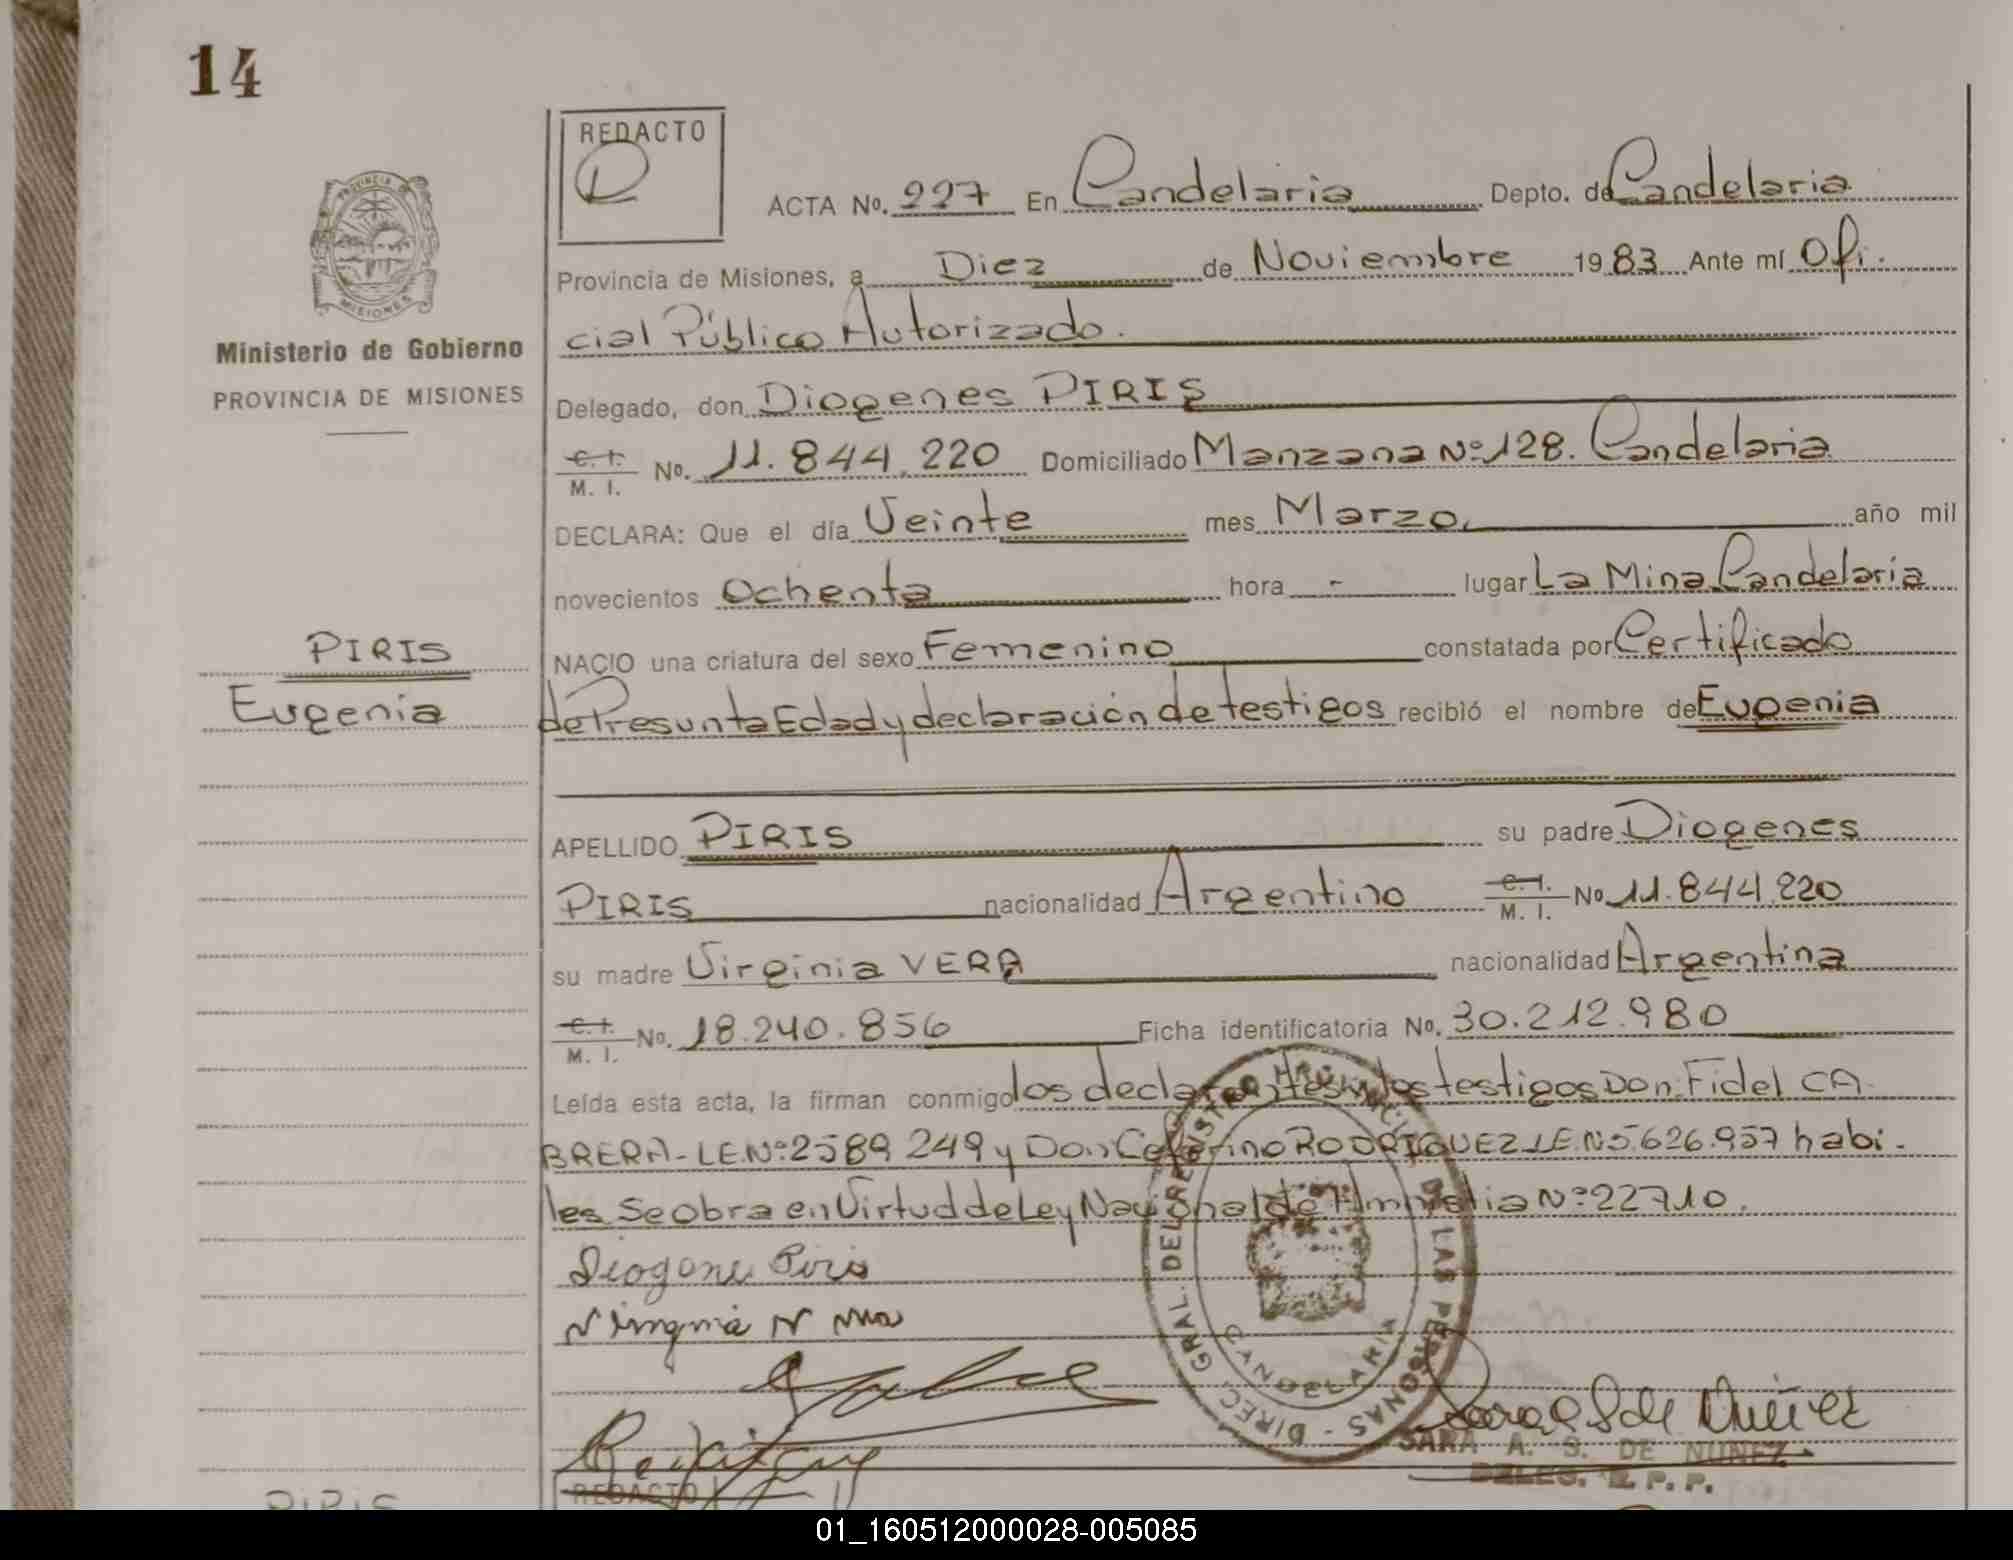 14
REDACTO
ACTA No. 227 En Candelaria Depto. de Candelaria
Provincia de Misiones, a Diez de Noviembre 1983 Ante mí Ofi.
cial Público Autorizado.
Ministerio de Gobierno
PROVINCIA DE MISIONES
Delegado, don Diogenes PIRIS
C. I. M. I. No. 11.844.220 Domiciliado Manzana Nº 128. Candelaria
DECLARA: Que el día Veinte mes Marzo, año mil
novecientos Ochenta hora - lugar La Mina Candelaria
PIRIS
Eugenia
NACIO una criatura del sexo Femenino constatada por Certificado
de Presunta Edad y declaración de testigos recibió el nombre de Eugenia
APELLIDO PIRIS su padre Diogenes
PIRIS nacionalidad Argentino C. I. M. I. No 11.844.220
su madre Virginia VERA nacionalidad Argentina
C. I. M. I. No. 18.240.856 Ficha identificatoria No. 30.212.980
Leída esta acta, la firman conmigo los declarantes y los testigos Don: Fidel CA
BRERA - LE.Nº 2589 249 y Don Ceferino RODRIGUEZ LE.N 5.626.957 habi-
les Se obra en Virtud de Ley Nacional de Amnistia Nº 22710.
Diogene Piris
DIREC. GRAL. DEL REGISTRO PROVINCIAL DE LAS PERSONAS -
CANDELARIA
SARA A. S. DE NUÑEZ
DELEG. R. P. P.
REDACTO
PIRIS
01_160512000028-005085